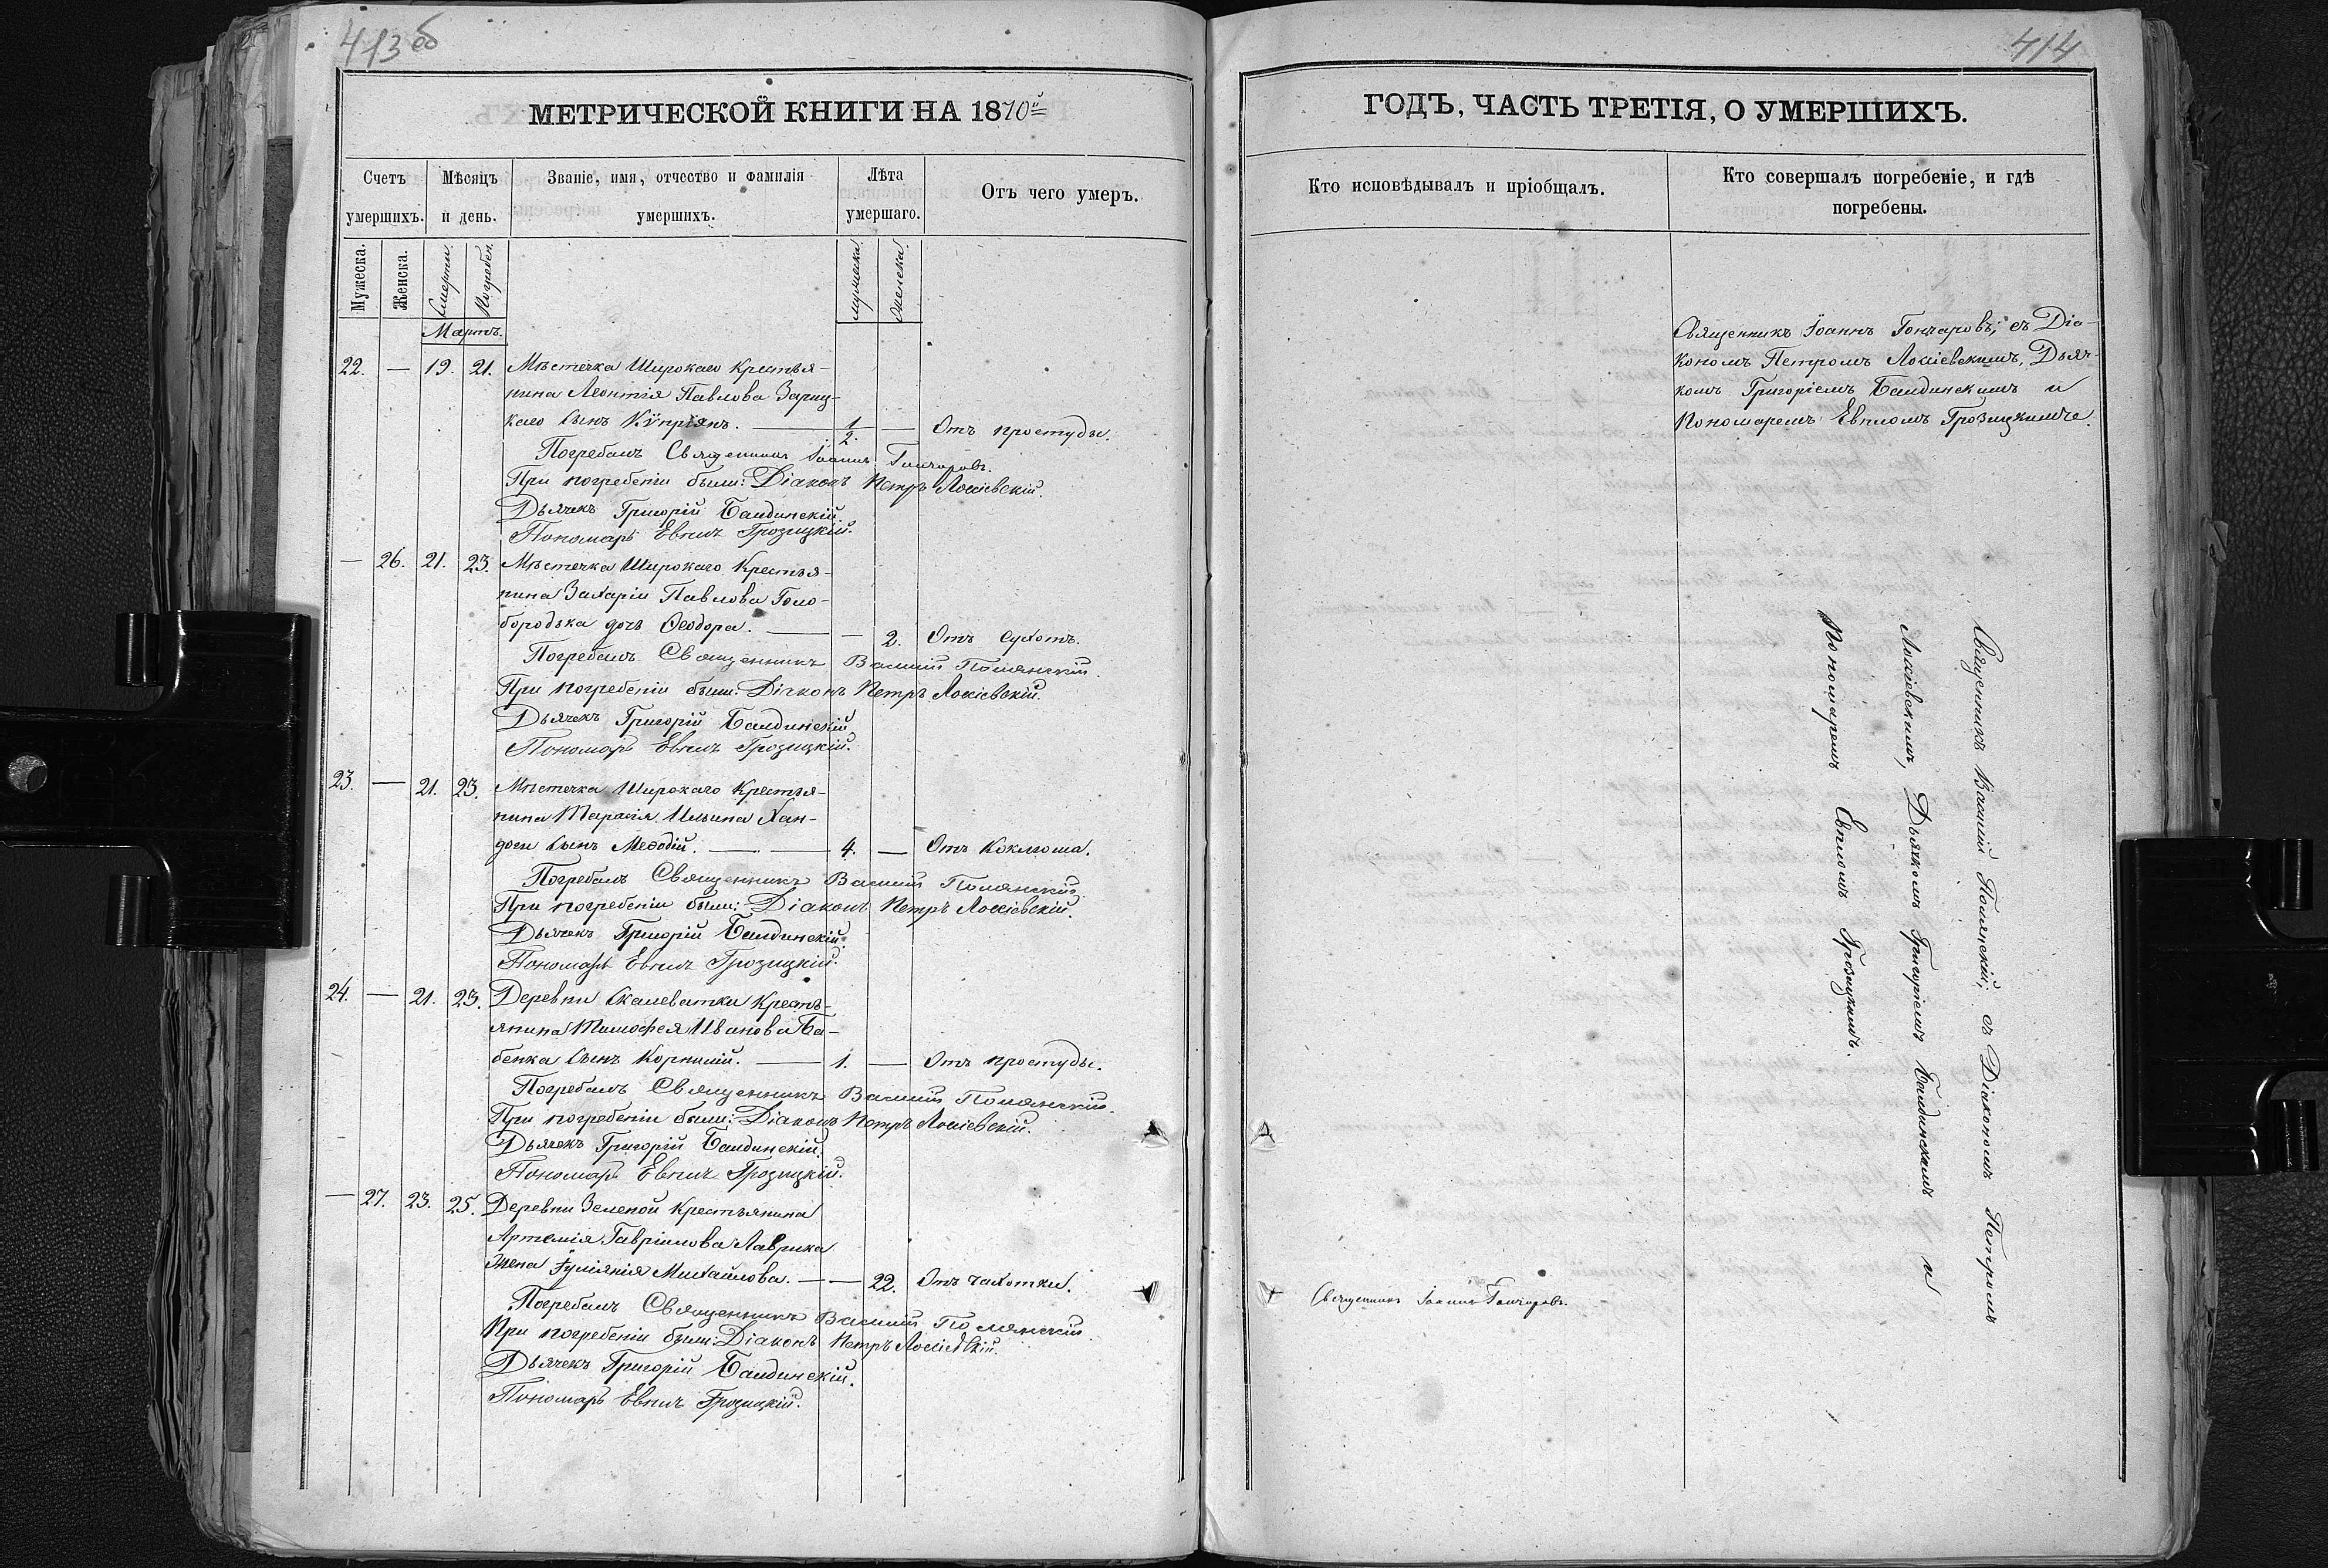 413 об
МЕТРИЧЕСКОЙ КНИГИ НА 1870й
Счетъ умершихъ.
Мѣсяцъ и день.
Званіе, имя, отчество и фамилія умершихъ.
Лѣта умершаго.
Отъ чего умеръ.
Мужеска.
Женска.
Смерти.
Погребен.
мужеска.
женска.
Мартъ.
22. — 19. 21. Мѣстечка Широкаго крестья-
нина Леонтія Павлова Зариц-
каго сынъ Кѵпріянъ. — 1/2. — Отъ простуды.
Погребалъ Священникъ Іоаннъ Гончаровъ.
При погребеніи были: Діаконъ Петръ Локіевскій.
Дьячекъ Григорій Балдинскій.
Пономарь Евплъ Грозицкій.
— 26. 21. 23. Мѣстечка Широкаго крестья-
нина Захаріи Павлова Голо-
бородька дочь Ѳеодора. — — 2. Отъ сухотъ.
Погребалъ Священникъ Василій Полянскій.
При погребеніи были: Діаконъ Петръ Локіевскій.
Дьячекъ Григорій Балдинскій.
Пономарь Евплъ Грозицкій.
23. — 21. 23. Мѣстечка Широкаго крестья-
нина Тарасія Ильина Хан-
доги сынъ Меѳодій. — 4. — Отъ коклюша.
Погребалъ Священникъ Василій Полянскій.
При погребеніи были: Діаконъ Петръ Локіевскій.
Дьячекъ Григорій Балдинскій.
Пономарь Евплъ Грозицкій.
24. — 21. 23. Деревни Скалеватки кресть-
янина Тимофея Иванова Ба-
бенка сынъ Корнилій. — 1. — Отъ простуды.
Погребалъ Священникъ Василій Полянскій.
При погребеніи были: Діаконъ Петръ Локіевскій.
Дьячекъ Григорій Балдинскій.
Пономарь Евплъ Грозицкій.
— 27. 23. 25. Деревни Зеленой крестьянина
Артемія Гавріилова Лаврика
жена Іуліянія Михайлова. — — 22. Отъ чахотки.
Погребалъ Священникъ Василій Полянскій.
При погребеніи были: Діаконъ Петръ Локіевскій.
Дьячекъ Григорій Балдинскій.
Пономарь Евплъ Грозицкій.
414
ГОДЪ, ЧАСТЬ ТРЕТІЯ, О УМЕРШИХЪ.
Кто исповѣдывалъ и пріобщалъ.
Кто совершалъ погребеніе, и гдѣ
погребены.
Священникъ Іоаннъ Гончаровъ; съ Діа-
кономъ Петромъ Локіевскимъ, Дьяч-
комъ Григоріемъ Балдинскимъ и
Пономаремъ Евпломъ Грозицкимъ.
Священникъ Василій Полянскій; съ Діакономъ Петромъ
Локіевскимъ, Дьячкомъ Григоріемъ Балдинскимъ и
Пономаремъ Евпломъ Грозицкимъ.
Священникъ Іоаннъ Гончаровъ.